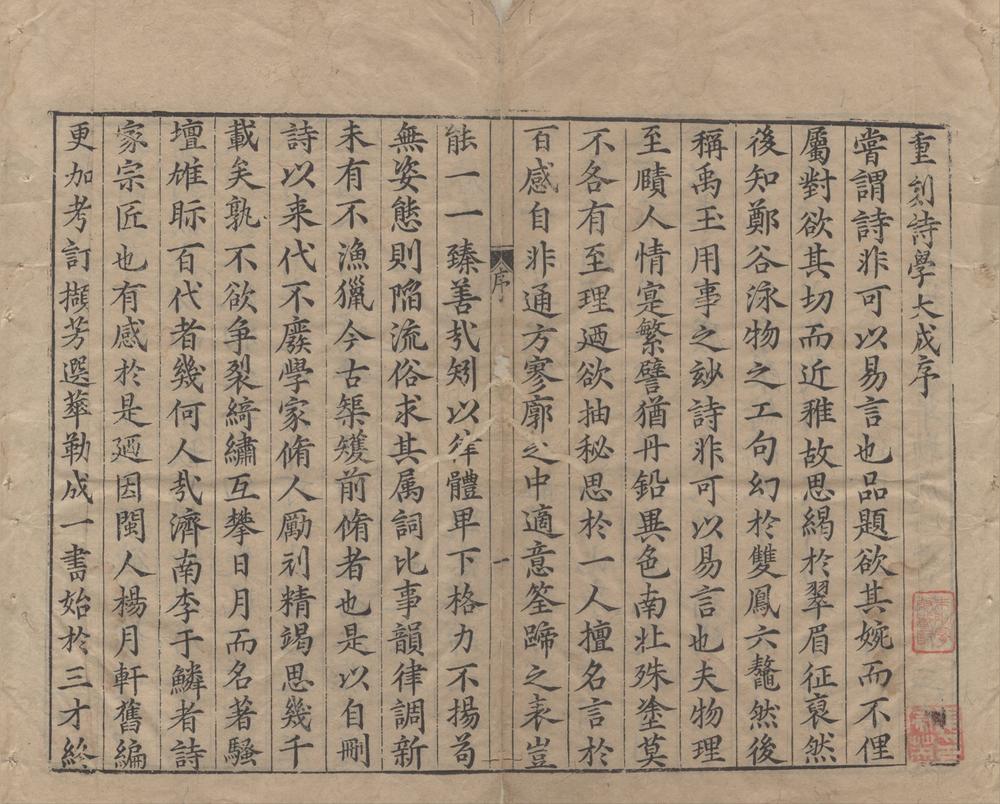 重刻詩學大成序
嘗謂詩非可以易言也品題欲其婉而不俚
屬對欲其切而近雅故思緝於翠眉征裒然
後知鄭谷泳物之工句幻於雙鳳六鼇然後
稱禹玉用事之玅詩非可以易言也夫物理
至賾人情寔繁譬猶丹鉛異色南壯殊塗莫
不各有至理廼欲抽秘思於一人擅名言於
百感自非通方寥廓之中適意筌蹄之表豈
能一一臻善㢤矧以體卑下格力不揚苟
無姿態則陷流俗求其属詞比事韻律調新
未有不漁獵今古榘矱前脩者也是以自刪
詩以来代不廢學家脩人勵刋精竭思幾千
載矣孰不欲争裂綺繡互攀日月而名著騷
壇雄眎百代者幾何人㢤濟南李于鱗者詩
家宗匠也有感於是廼因閩人楊月軒舊編
更加考訂擷芳選華勒成一書始於三才終
序
一